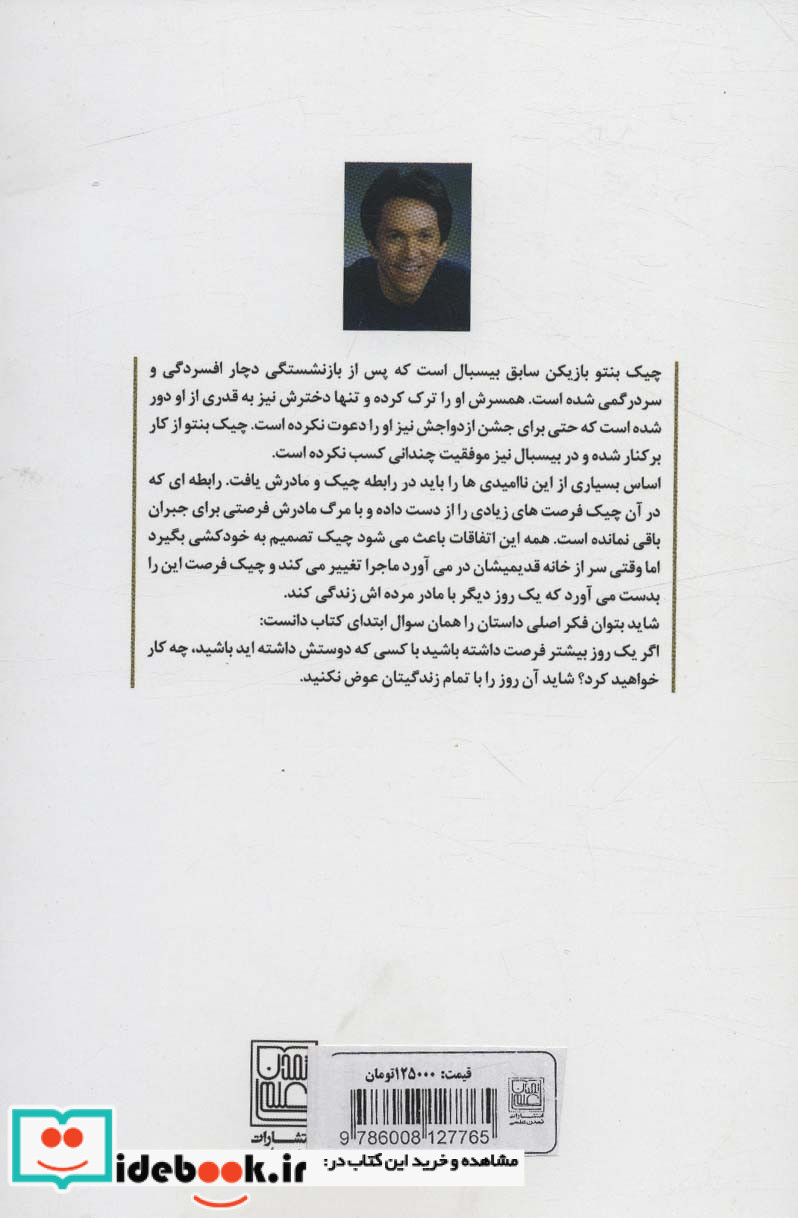 چیک بنتو بازیکن سابق بیسبال است که پس از بازنشستگی دچار افسردگی و
سردرگمی شده است. همسرش او را ترک کرده و تنها دخترش نیز به قدری از او دور
شده است که حتی برای جشن ازدواجش نیز او را دعوت نکرده است. چیک بنتو از کار
برکنار شده و در بیسبال نیز موفقیت چندانی کسب نکرده است.
اساس بسیاری از این ناامیدی ها را باید در رابطه چیک و مادرش یافت. رابطه ای که
در آن چیک فرصت های زیادی را از دست داده و با مرگ مادرش فرصتی برای جبران
باقی نمانده است. همه این اتفاقات باعث می شود چیک تصمیم به خودکشی بگیرد
اما وقتی سر از خانه قدیمیشان در می آورد ماجرا تغییر می کند و چیک فرصت این را
بدست می آورد که یک روز دیگر با مادر مرده اش زندگی کند.
شاید بتوان فکر اصلی داستان را همان سوال ابتدای کتاب دانست:
اگر یک روز بیشتر فرصت داشته باشید با کسی که دوستش داشته اید باشید، چه کار
خواهید کرد؟ شاید آن روز را با تمام زندگیتان عوض نکنید.
تمدن علمی
انتشارات
قیمت: ۱۲۵۰۰۰تومان
انتشارات
تمدن علمی
9 786008 127765
مشاهده و خرید این کتاب در:
idebook.ir